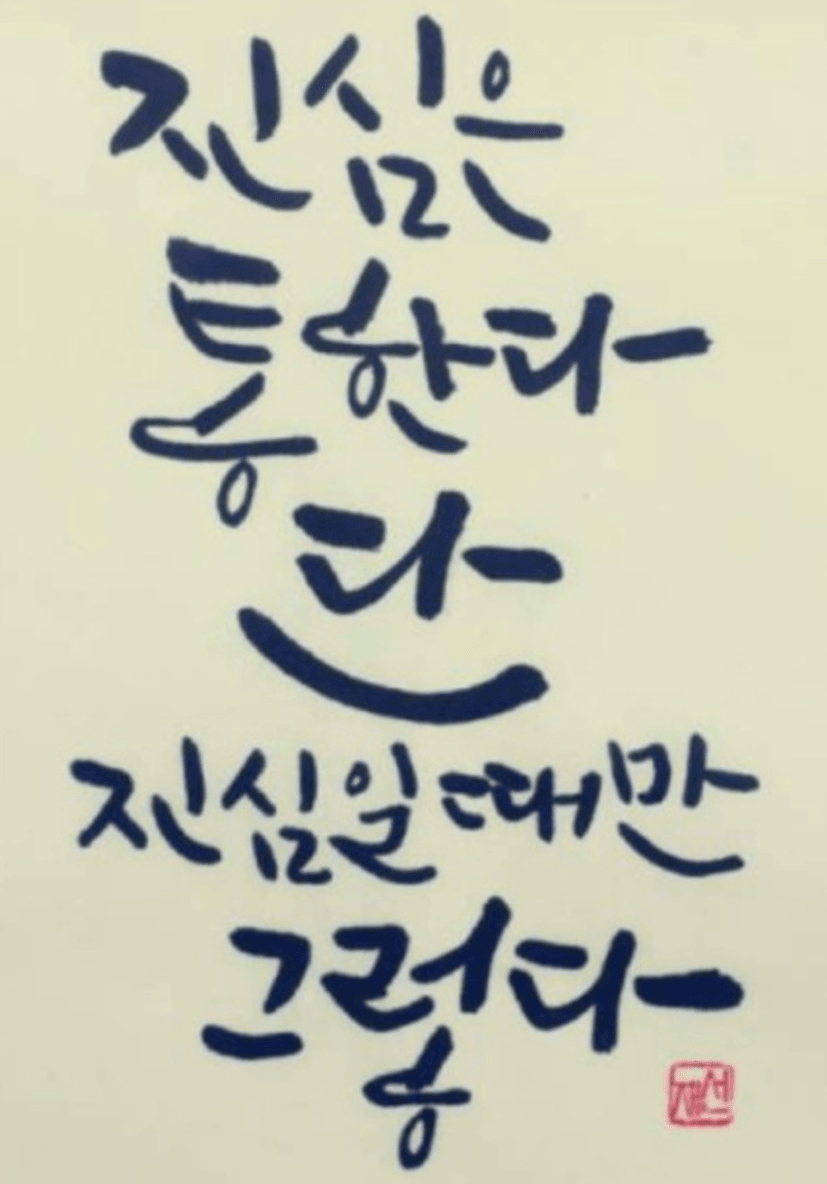 진심은
통한다
단
진심일 때만
그렇다